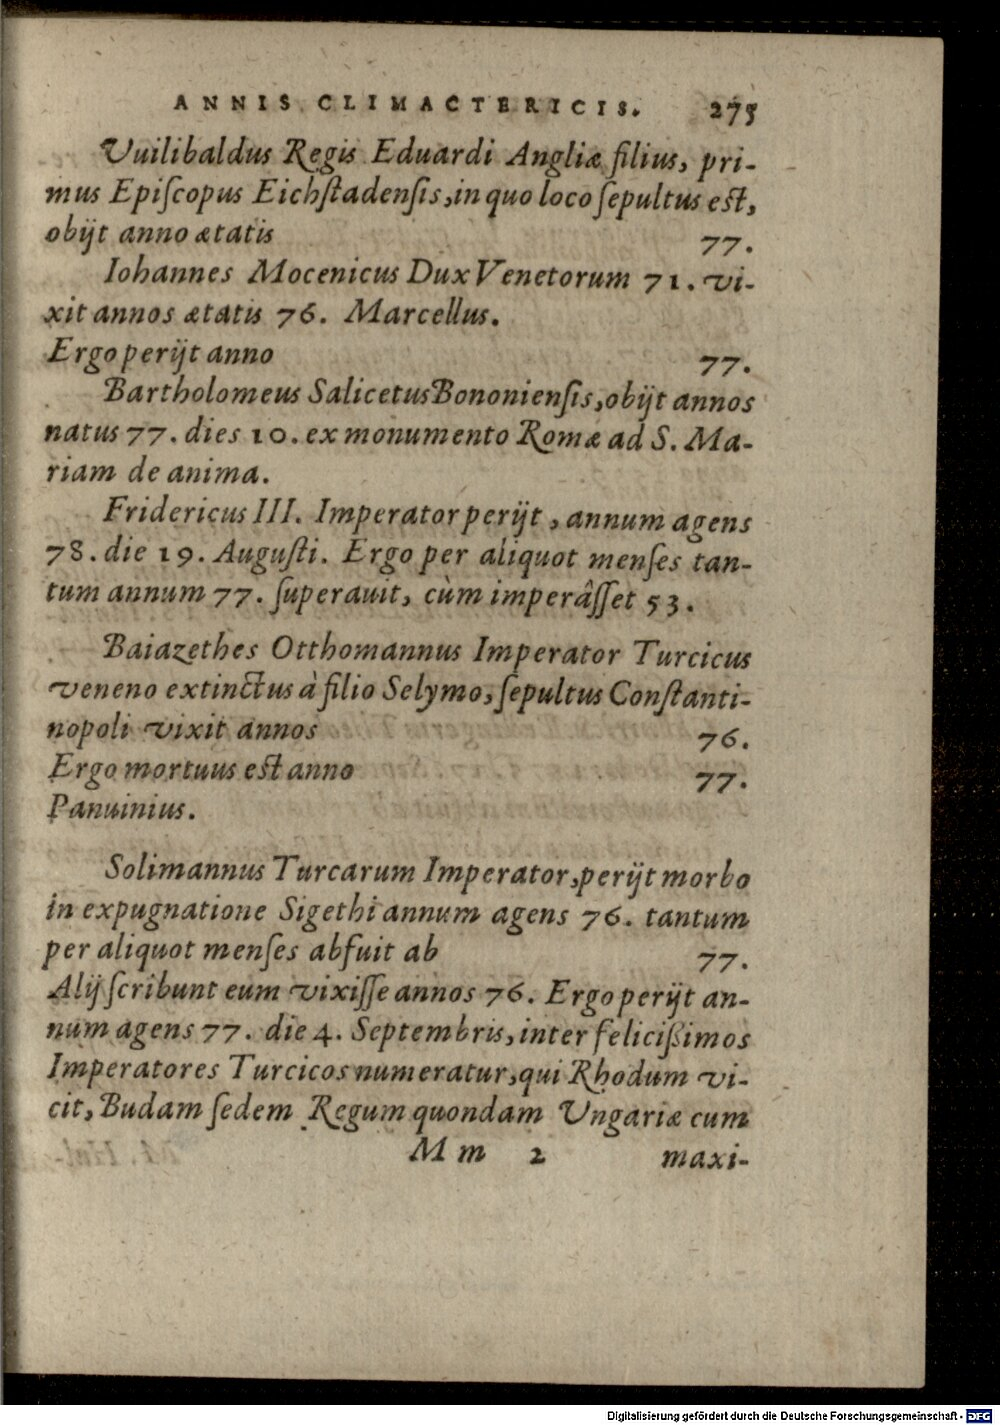 ANNIS CLIMACTERICIS. 275
Vuilibaldus Regis Eduardi Angliæ filius, pri-
mus Epiſcopus Eichſtadenſis, in quo loco ſepultus est,
obijt anno ætatis 77.
Iohannes Mocenicus Dux Venetorum 71. vi-
xit annos ætatis 76. Marcellus.
Ergo perijt anno 77.
Bartholomeus Salicetus Bononienſis, obijt annos
natus 77. dies 10. ex monumento Romæ ad S. Ma-
riam de anima.
Fridericus III. Imperator perijt, annum agens
78. die 19. Auguſti. Ergo per aliquot menſes tan-
tum annum 77. ſuperauit, cùm imperâſſet 53.
Baiazethes Otthomannus Imperator Turcicus
veneno extinctus à filio Selymo, ſepultus Conſtanti-
nopoli vixit annos 76.
Ergo mortuus est anno 77.
Panuinius.
Solimannus Turcarum Imperator, perijt morbo
in expugnatione Sigethi annum agens 76. tantum
per aliquot menſes abfuit ab 77.
Alij ſcribunt eum vixiſſe annos 76. Ergo perijt an-
num agens 77. die 4. Septembris, inter felicißimos
Imperatores Turcicos numeratur, qui Rhodum vi-
cit, Budam ſedem Regum quondam Vngariæ cum
M m 2 maxi-
Digitalisierung gefördert durch die Deutsche Forschungsgemeinschaft - DFG